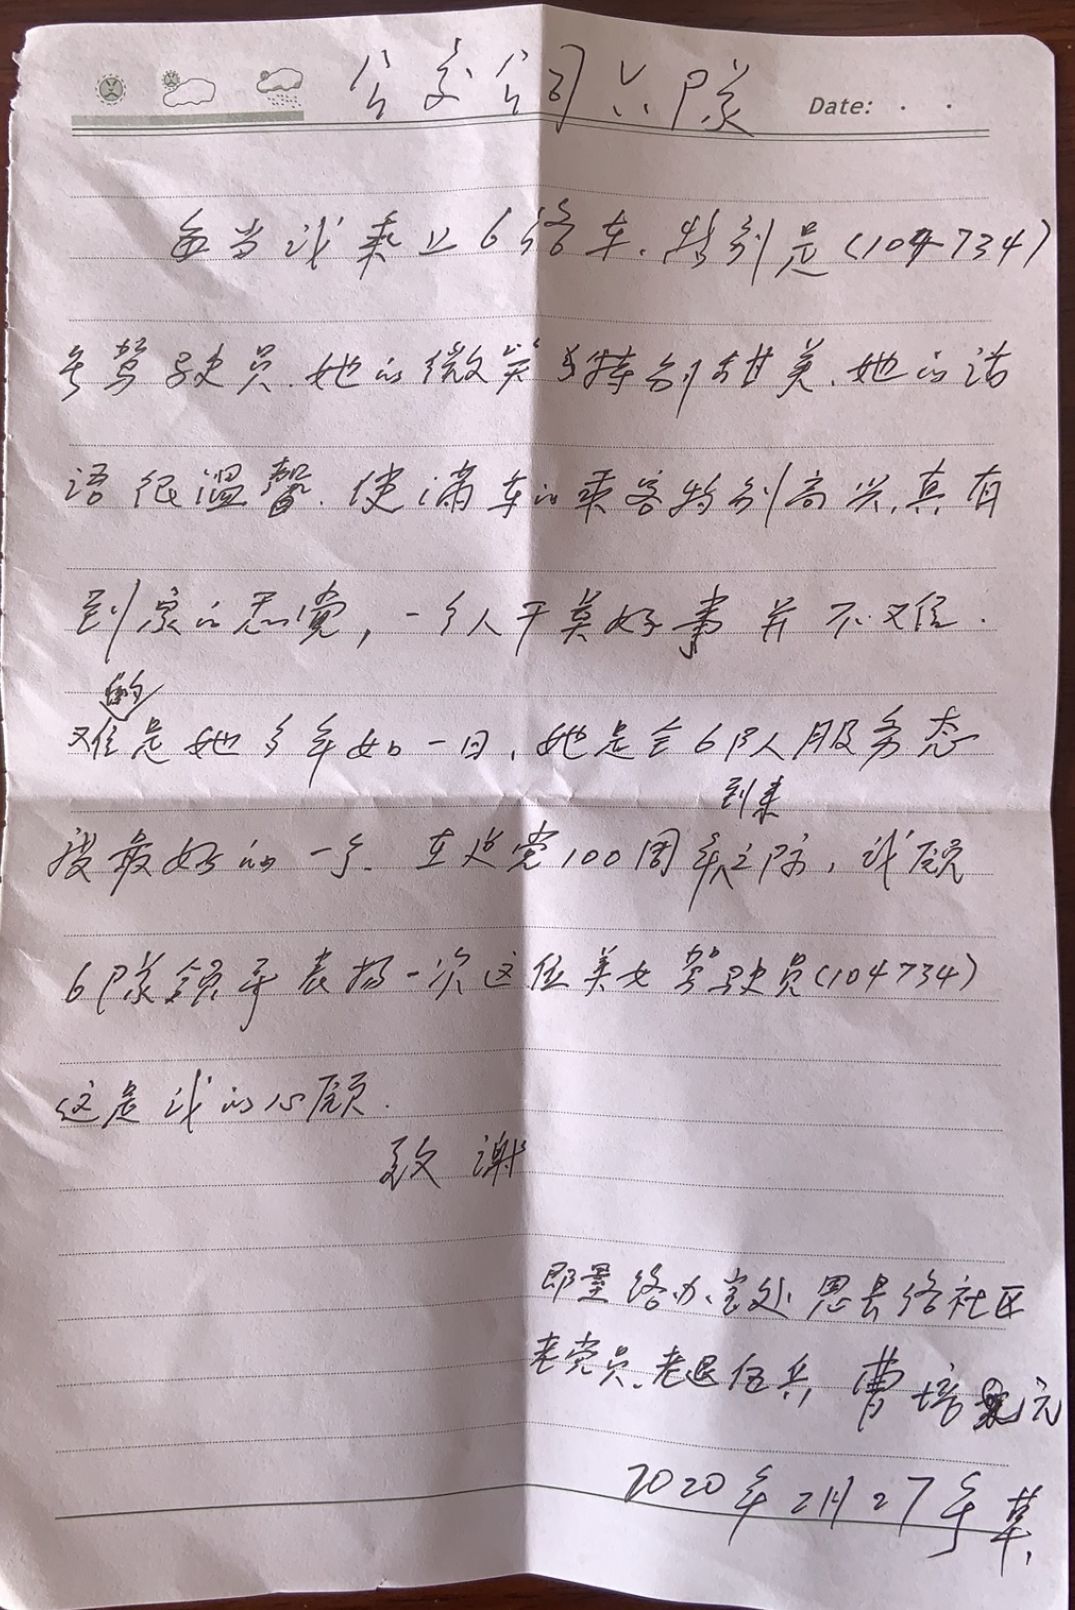 公交公司六队
Date:
每当我乘上6路车.特别是(104734)
号驾驶员.她的微笑特别甜美.她的话
语很温馨.使满车的乘客特别高兴,真有
到家的感觉,一个人干莫好事并不难.
难的是她多年如一日、她是全6队服务态
度最好的一个.在建党100周年到来之际,我愿
6队领导表扬一次这位美女驾驶员(104734)
这是我的心愿.
致谢
即墨路办事处恩县路社区
老党员、老退伍兵,曹培元
2020年2月27号草,